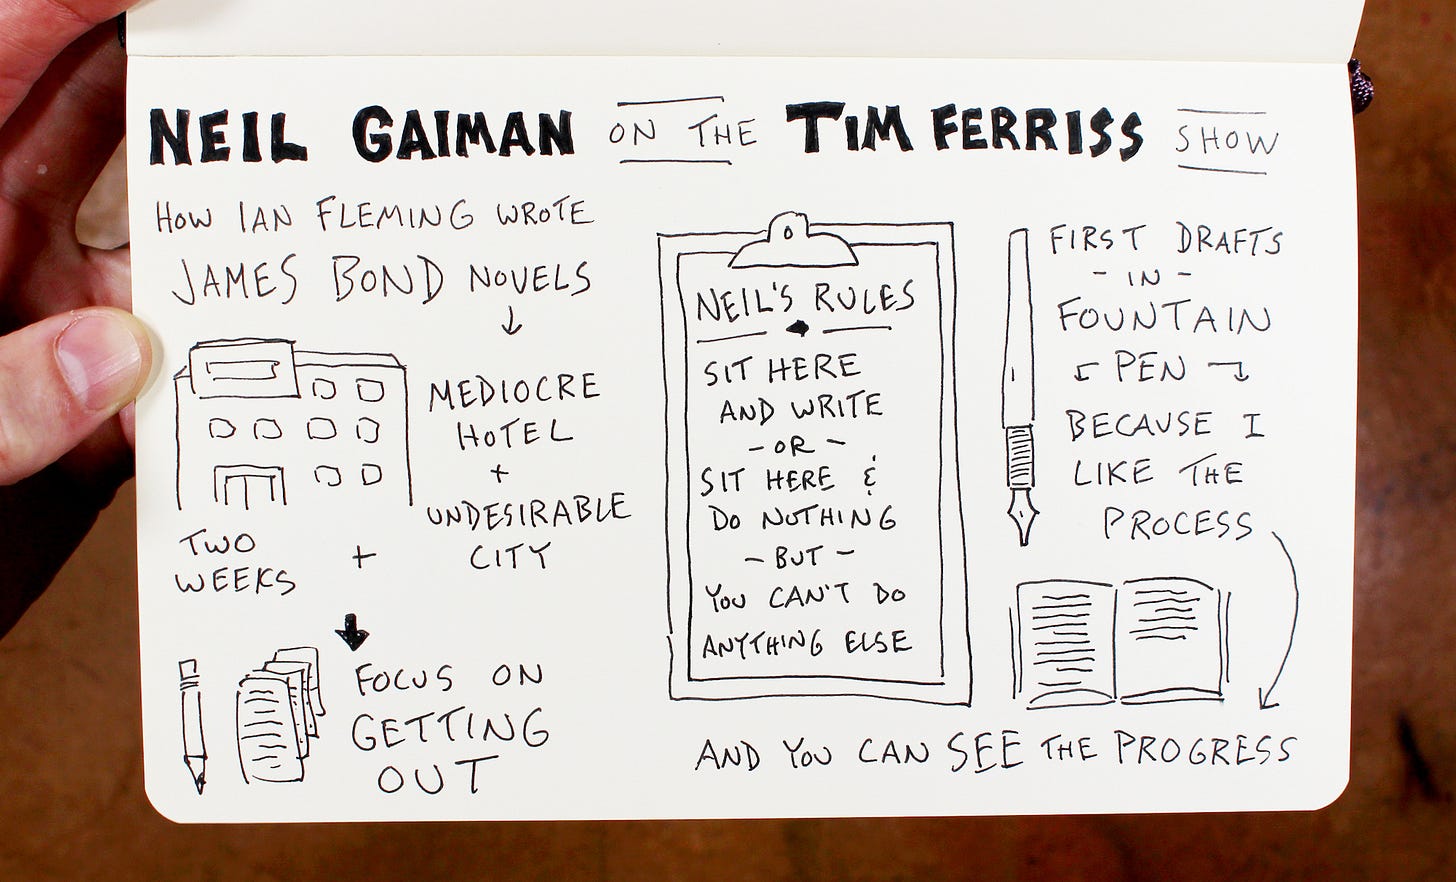 NEIL GAIMAN ON THE TIM FERRISS SHOW
HOW IAN FLEMING WROTE
JAMES BOND NOVELS
MEDIOCRE
HOTEL
+
UNDESIRABLE
CITY
+
TWO
WEEKS
FOCUS ON
GETTING
OUT
NEIL'S RULES
SIT HERE
AND WRITE
- OR -
SIT HERE &
DO NOTHING
- BUT -
YOU CAN'T DO
ANYTHING ELSE
FIRST DRAFTS
- IN -
FOUNTAIN
PEN
BECAUSE I
LIKE THE
PROCESS
AND YOU CAN SEE THE PROGRESS